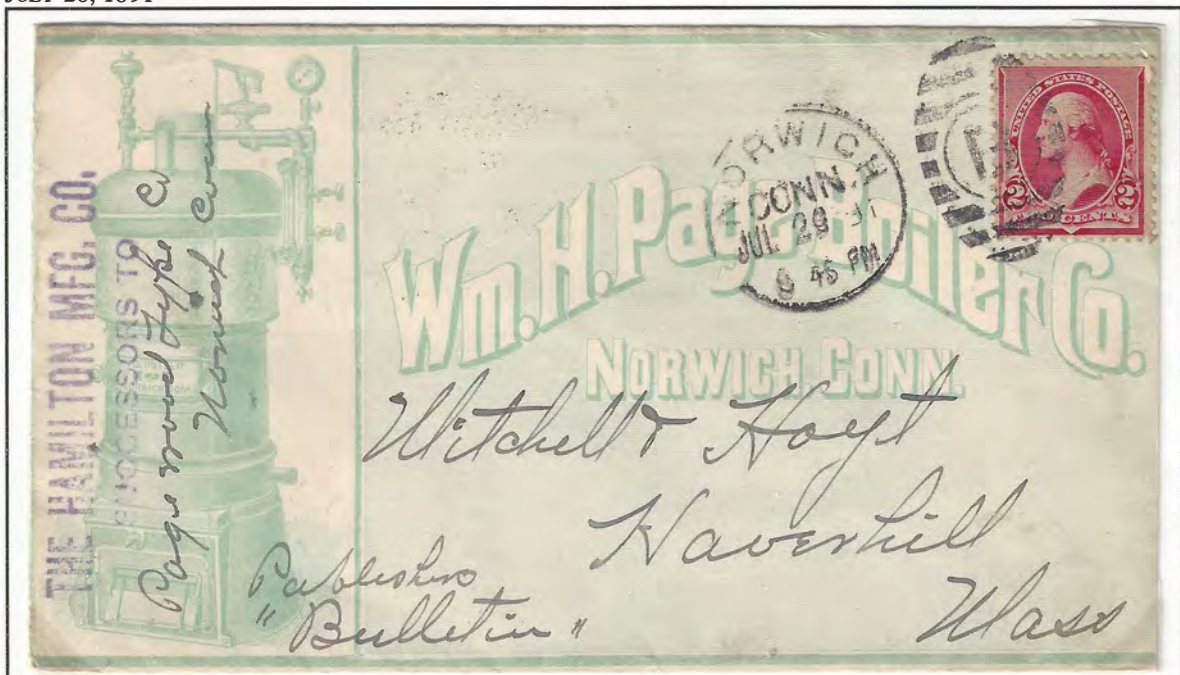 JULY 1891
THE HAMILTON MFG. CO.
SUCCESSORS TO
Page wood Type Co
Norwich Conn
Wm. H. Page Boiler Co.
NORWICH, CONN.
NORWICH
CONN.
JUL 29
9 45 PM
UNITED STATES POSTAGE
2 2
TWO CENTS
Mitchell & Hoyt
Haverhill
Mass
Publishers
"Bulletin"